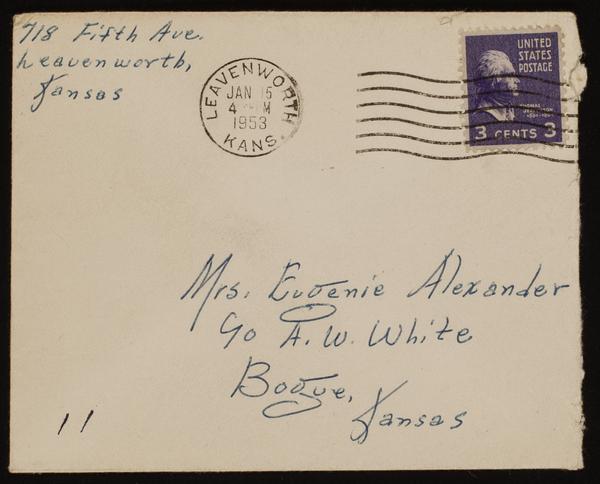 718 Fifth Ave.
Leavenworth,
Kansas
LEAVENWORTH
JAN 15
4 PM
1953
KANS.
UNITED
STATES
POSTAGE
THOMAS
JEFFERSON
3 CENTS 3
Mrs. Eugenie Alexander
c/o A. W. White
Bogue,
Kansas
11